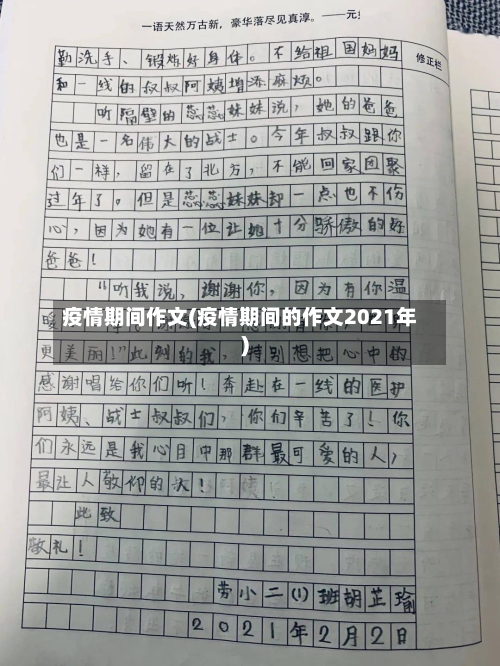 一语天然万古新，豪华落尽见真淳。——元!
修正栏
勤洗手、锻炼好身体。不给祖国妈妈
和一线的叔叔阿姨增添麻烦。
听隔壁的蕊蕊妹妹说，她的爸爸
也是一名伟大的战士。今年叔叔跟你
们一样，留在了北方，不能回家团聚
过年了。但是蕊蕊妹妹却一点也不伤
心，因为她有一位让她十分骄傲的好
爸爸！
"听我说，谢谢你，因为有你温
暖
疫情期间作文(疫情期间的作文2021年
)
更美丽！"此刻的我，特别想把心中的
感谢唱给你们听！奔赴在一线的医护
阿姨、战士叔叔们，你们辛苦了！你
们永远是我心目中那群最可爱的人，
最让人敬仰的人！
此致
敬礼！
劳小二(1)班胡芷瑜
2021年2月2日